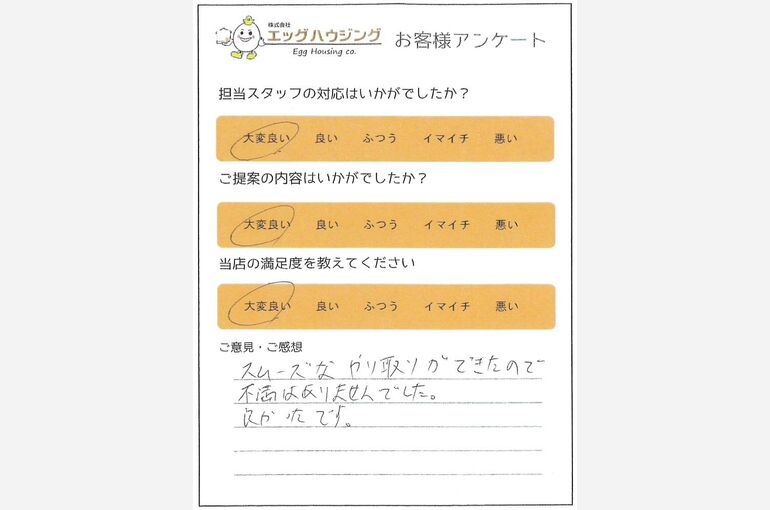 株式会社
エッグハウジング お客様アンケート
Egg Housing co.
担当スタッフの対応はいかがでしたか？
大変良い 良い ふつう イマイチ 悪い
ご提案の内容はいかがでしたか？
大変良い 良い ふつう イマイチ 悪い
当店の満足度を教えてください
大変良い 良い ふつう イマイチ 悪い
ご意見・ご感想
スムーズなやり取りができたので
不満はありませんでした。
良かったです。